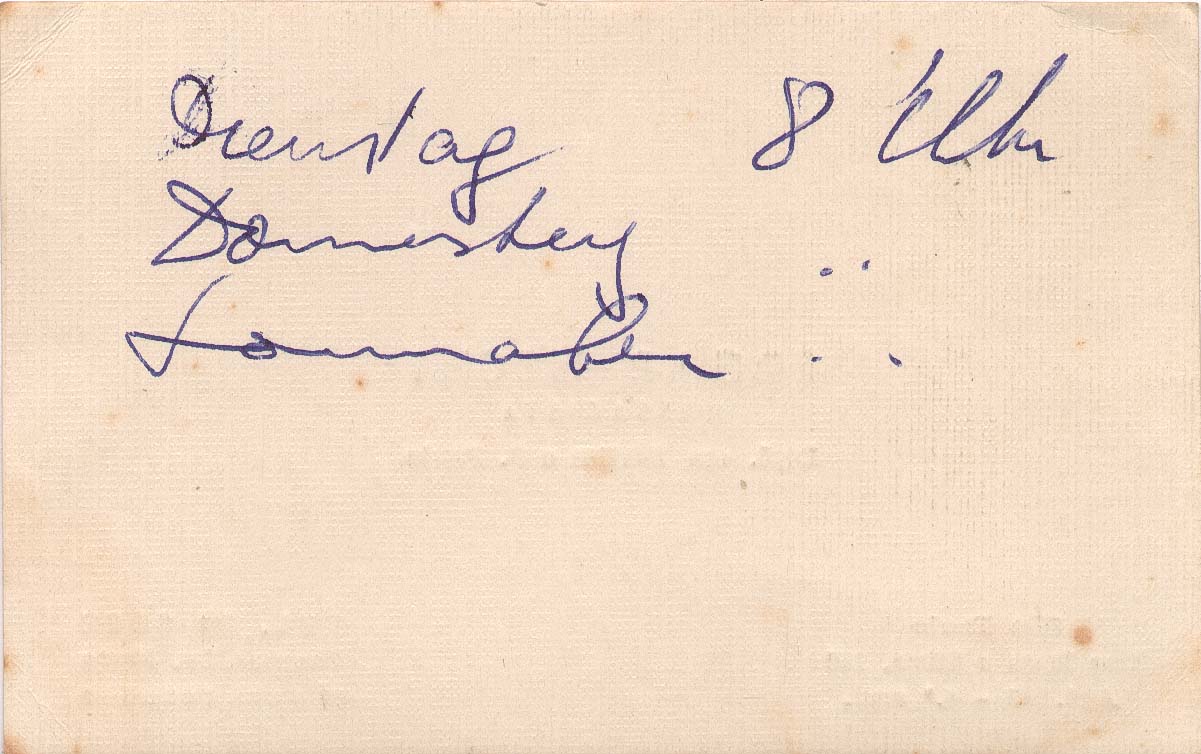 Dienstag 8 Uhr
Donnerstag ..
Sonnabend ..